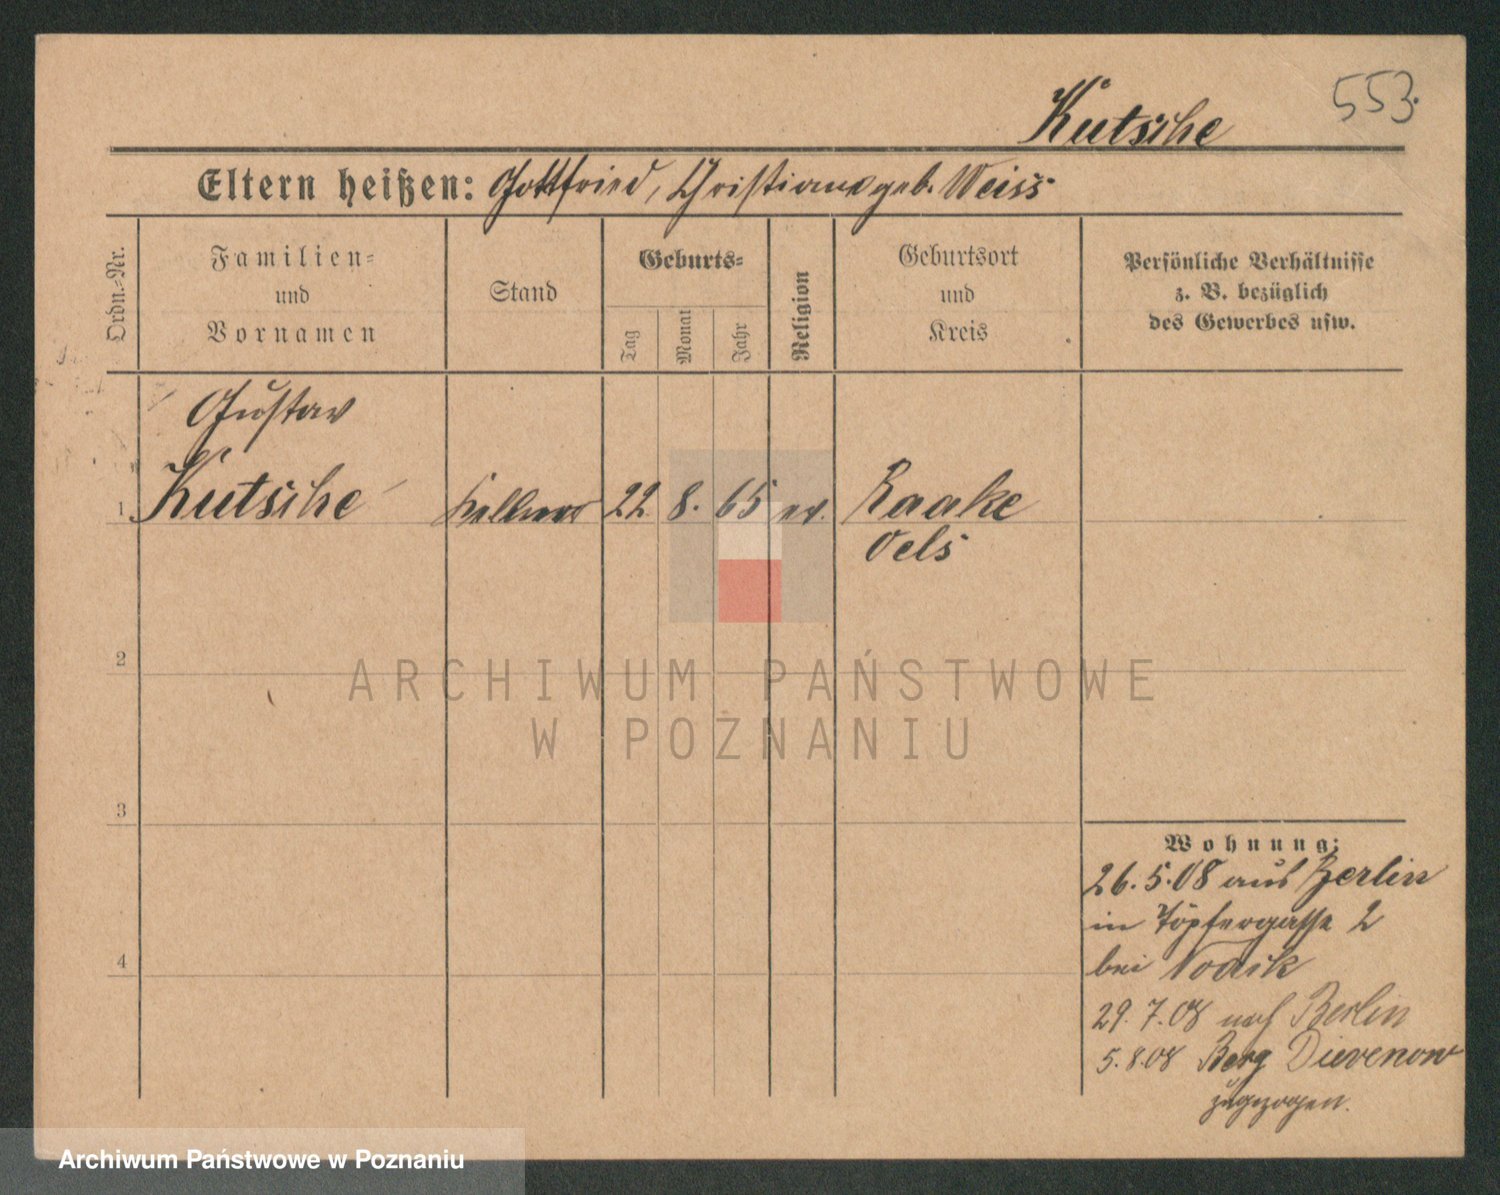 553.
Kutsche
Eltern heißen: Gottfried, Christiane geb. Weiss
Ordn.-Nr.
Familien-
und
Vornamen
Stand
Geburts-
Tag
Monat
Jahr
Religion
Geburtsort
und
Kreis
Persönliche Verhältnisse
z. B. bezüglich
des Gewerbes usw.
Gustav
1 Kutsche Kellner 22 8. 65 ev. Raake
Oels
2
ARCHIWUM PAŃSTWOWE
W POZNANIU
3
Wohnung:
26.5.08 aus Berlin
in Töpfergasse 2
bei
4
29.7.08 nach Berlin
5.8.08 Berg Dievenow
zugezogen.
Archiwum Państwowe w Poznaniu